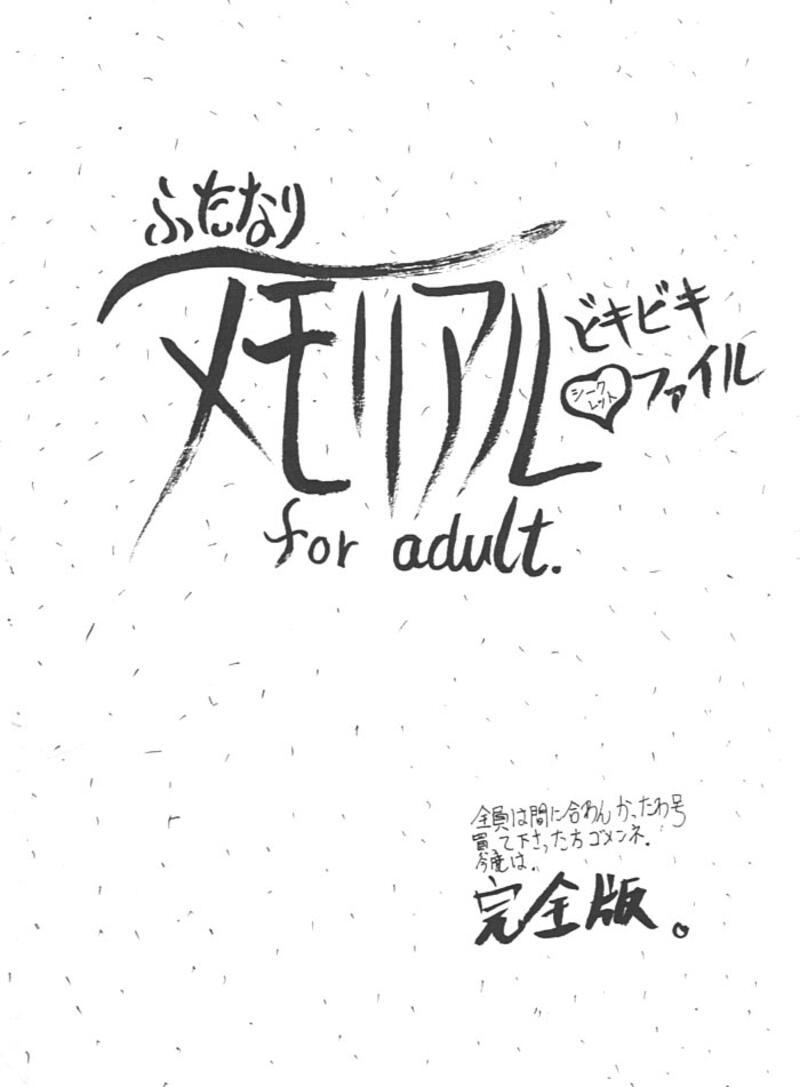 ふたなり
メモリアル
どキビキ
シークレット
ファイル
for adult.
全員は間に合わんかったわ号
買て下さった方ゴメンネ.
今度は..
完全版。